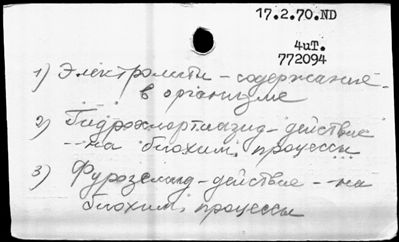 17.2.70.ND
4иT.
772094
1) Электролиты - содержание
в организме
2) Гидрохлортиазид - действие
- на биохим. процессы
3) Фуроземид - действие - на
биохим. процессы